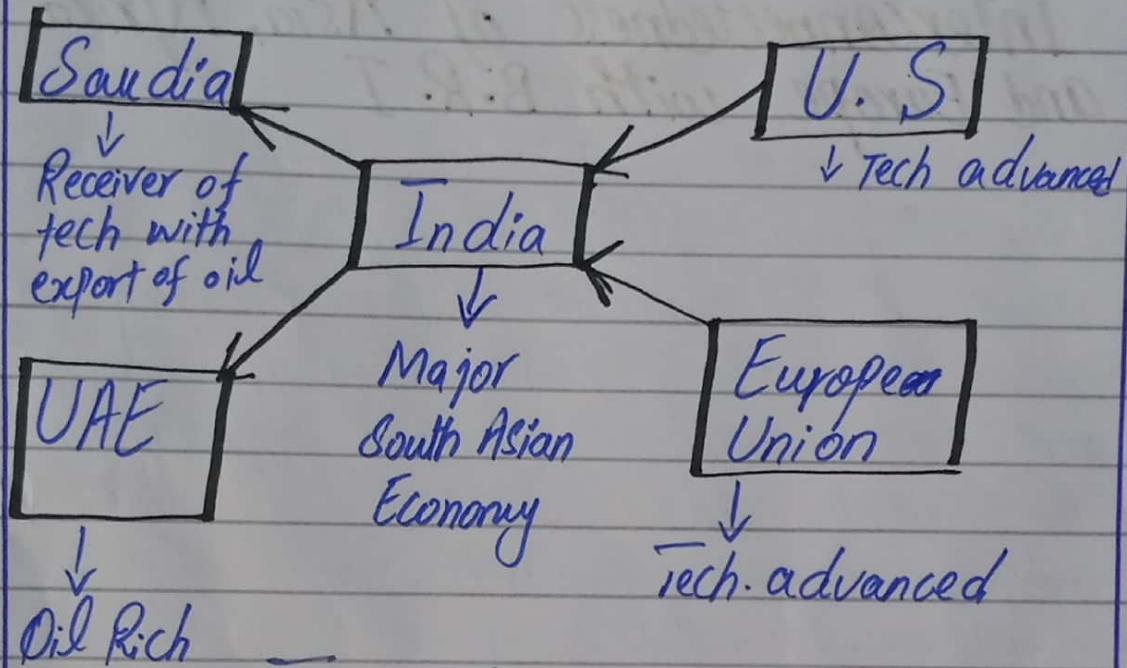 Saudia
U.S
↓
Receiver of
tech with
export of oil
↓ Tech advanced
India
↓
Major
South Asian
Economy
UAE
↓
Oil Rich
European
Union
↓
Tech. advanced